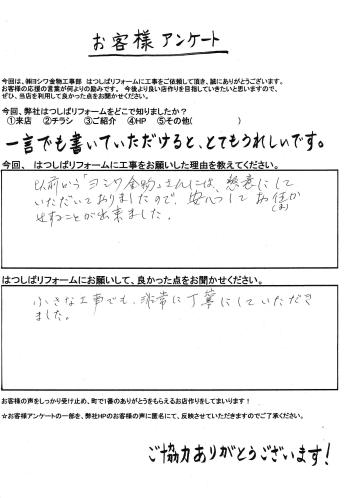 お客様 アンケート
今回は、㈱ヨシワ金物工事部 はつしばリフォームに工事をご依頼して頂き、誠にありがとうございます。
お客様の応援の言葉が何よりの励みです。 今後より良い店作りを目指していきたいと思いますので、
ぜひ、当店を利用して良かった点をお聞かせください。
今回、弊社はつしばリフォームをどこで知りましたか？
①来店 ②チラシ ③ご紹介 ④HP ⑤その他( )
一言でも書いていただけると、とてもうれしいです。
今回、 はつしばリフォームに工事をお願いした理由を教えてください。
以前から「ヨシワ金物」さんには、懇意にして
いただいておりましたので、安心してお任か
せすることが出来ました。
はつしばリフォームにお願いして、良かった点をお聞かせください。
小さな工事でも、非常に丁寧にしていただき
ました。
お客様の声をしっかり受け止め、町で1番のありがとうをもらえるお店作りをしてまいります！
☆お客様アンケートの一部を、弊社HPのお客様の声に匿名にて、反映させていただきますのでご了承ください。
ご協力ありがとうございます!